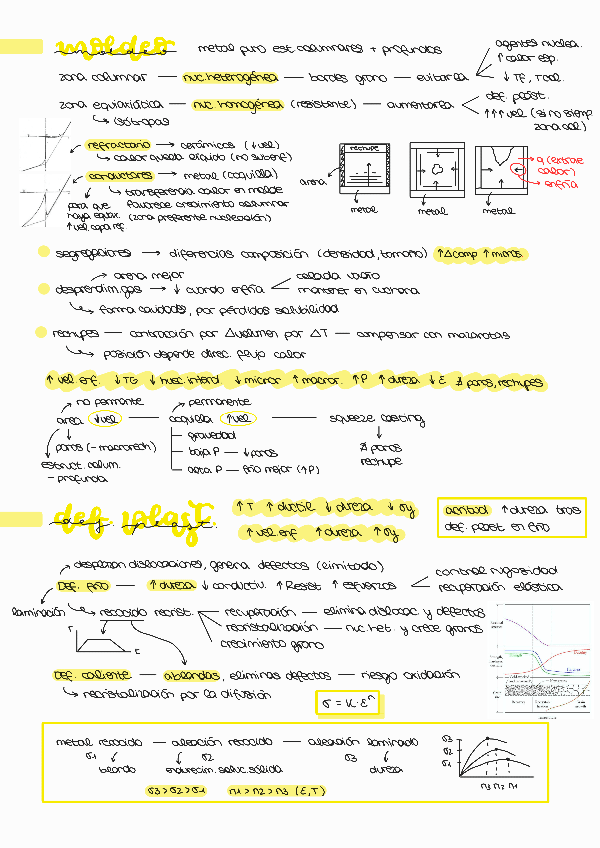 moldeo metal puro est. columnares + profundas
agentes nuclea.
↑ calor esp.
zona columnar — nuc. heterogénea — bordes grano — evitarla
↓ Tf, Tcol.
zona equiaxiática — nuc. homogénea (resistente) — aumentarla
def. plást.
↑↑↑ vel (si no siemp. zona col)
↳ isótropas
refractario → cerámicos (↓vel)
↳ calor queda líquido (no subenf)
conductores → metal (coquilla)
↳ transferencia calor en molde
favorece crecimiento columnar
(zona preferente nucleación)
para que
haya equiax.
↑ vel, capa ref.
arena
rechupe
metal
metal
metal
q (extrae calor)
enfría
segregaciones → diferencias composición (densidad, tamaño) ↑Δcomp ↑ micros.
arena mejor
desprendim. gas → ↓ cuando enfría
colada vacío
mantener en cuchara
↳ forma cavidades, por pérdidas solubilidad
rechupes — contracción por Δvolumen por ΔT — compensar con mazarotas
↳ posición depende direc. flujo calor
↑ vel enf. ↓ TG ↓ huec. interd. ↓ micror ↑ macror. ↑ P ↑ dureza ↓ E ∄ poros, rechupes
no permanente
permanente
arena ↓vel — coquilla ↑vel — squeeze casting
poros (- macrorech)
estruct. colum.
- profunda
gravedad
baja P — ↓ poros
alta P — frío mejor (↑P)
∄ poros
rechupe
def. plast.
↑ T ↑ ductil ↓ dureza ↓ σy
↑ vel enf ↑ dureza ↑ σy
acritud ↑ dureza tras
def. plast en frío
desplazan dislocaciones, genera defectos (limitado)
Def. frío — ↑ dureza ↓ conductiv. ↑ Resist ↑ esfuerzos
control rugosidad
recuperación elástica
laminación
recocido recrist.
recuperación — elimina dislocac. y defectos
recristalización — nuc. het. y crece granos
crecimiento grano
T
t
Def. caliente — ablandas, eliminas defectos — riesgo oxidación
↳ recristalización por la difusión
σ = K · εⁿ
metal recocido — aleación recocido — aleación laminado
σ1 σ2 σ3
blando endurecim. soluc. sólida dureza
σ3 > σ2 > σ1 n1 > n2 > n3 (E, T)
σ3
σ2
σ1
n3 n2 n1